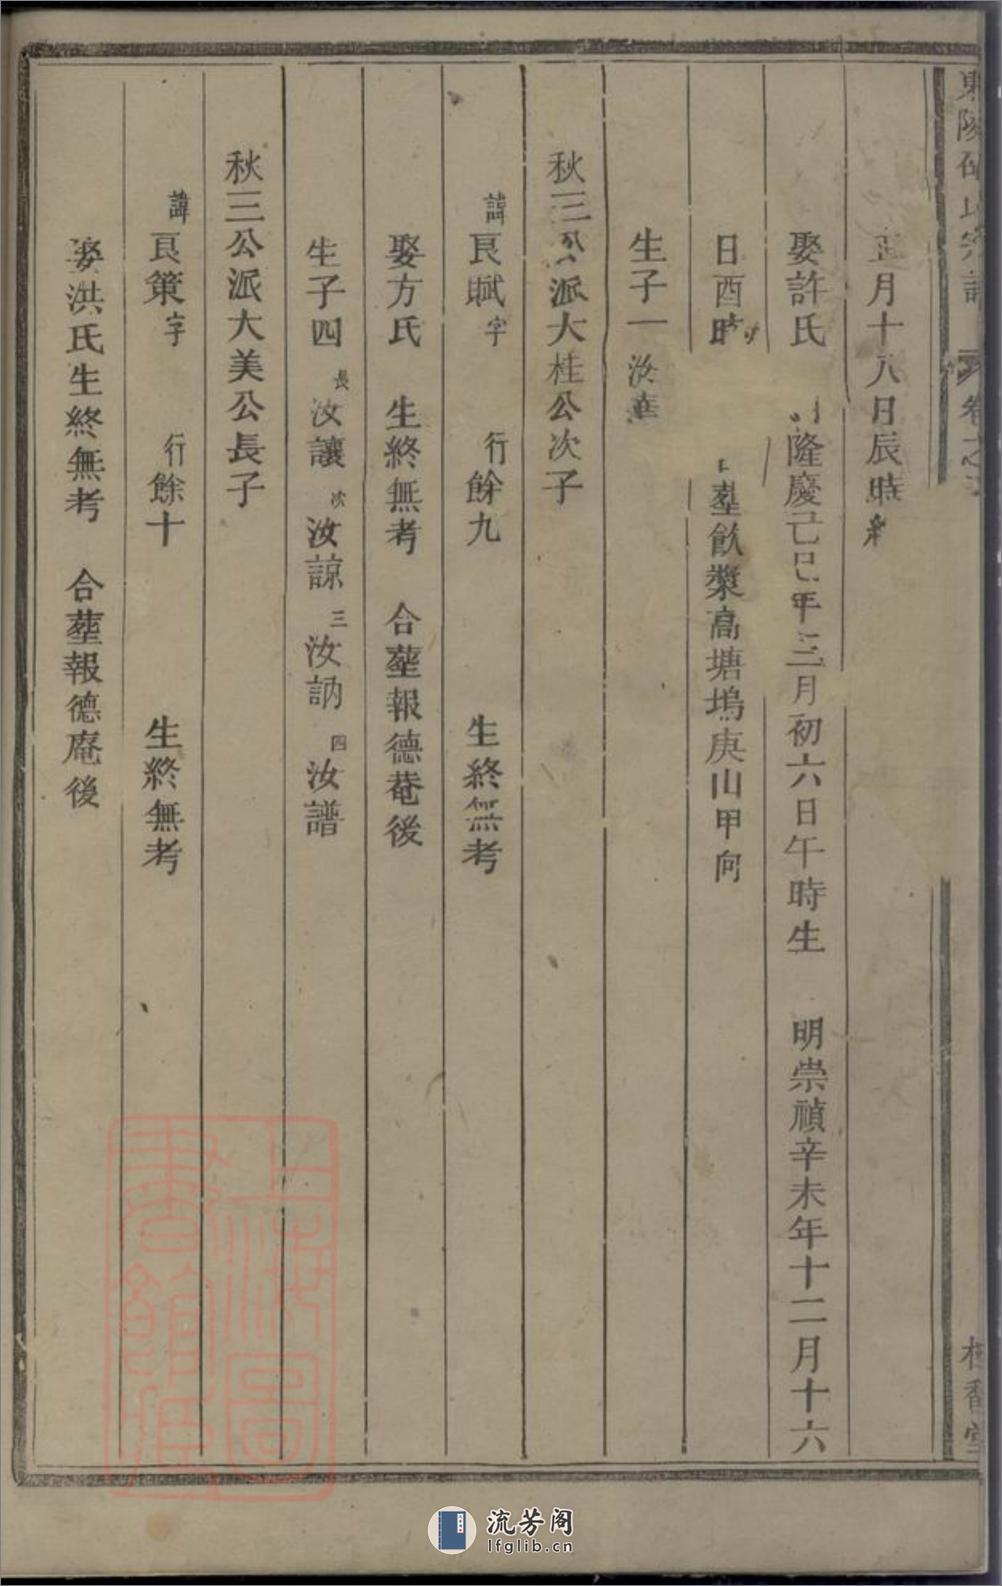 正月十八日辰時終
娶許氏 明隆慶己巳年三月初六日午時生 明崇禎辛未年十二月十六
日酉時 塟飲槳高塘塢庚山甲向
生子一 汝華
秋三公派大桂公次子
諱良賦字 行餘九 生終無考
娶方氏 生終無考 合塟報德菴後
生子四 長汝讓 次汝諒 三汝訥 四汝譜
秋三公派大美公長子
諱良策字 行餘十 生終無考
娶洪氏生終無考 合塟報德庵後
上海圖書館藏
流芳阁
lfglib.cn